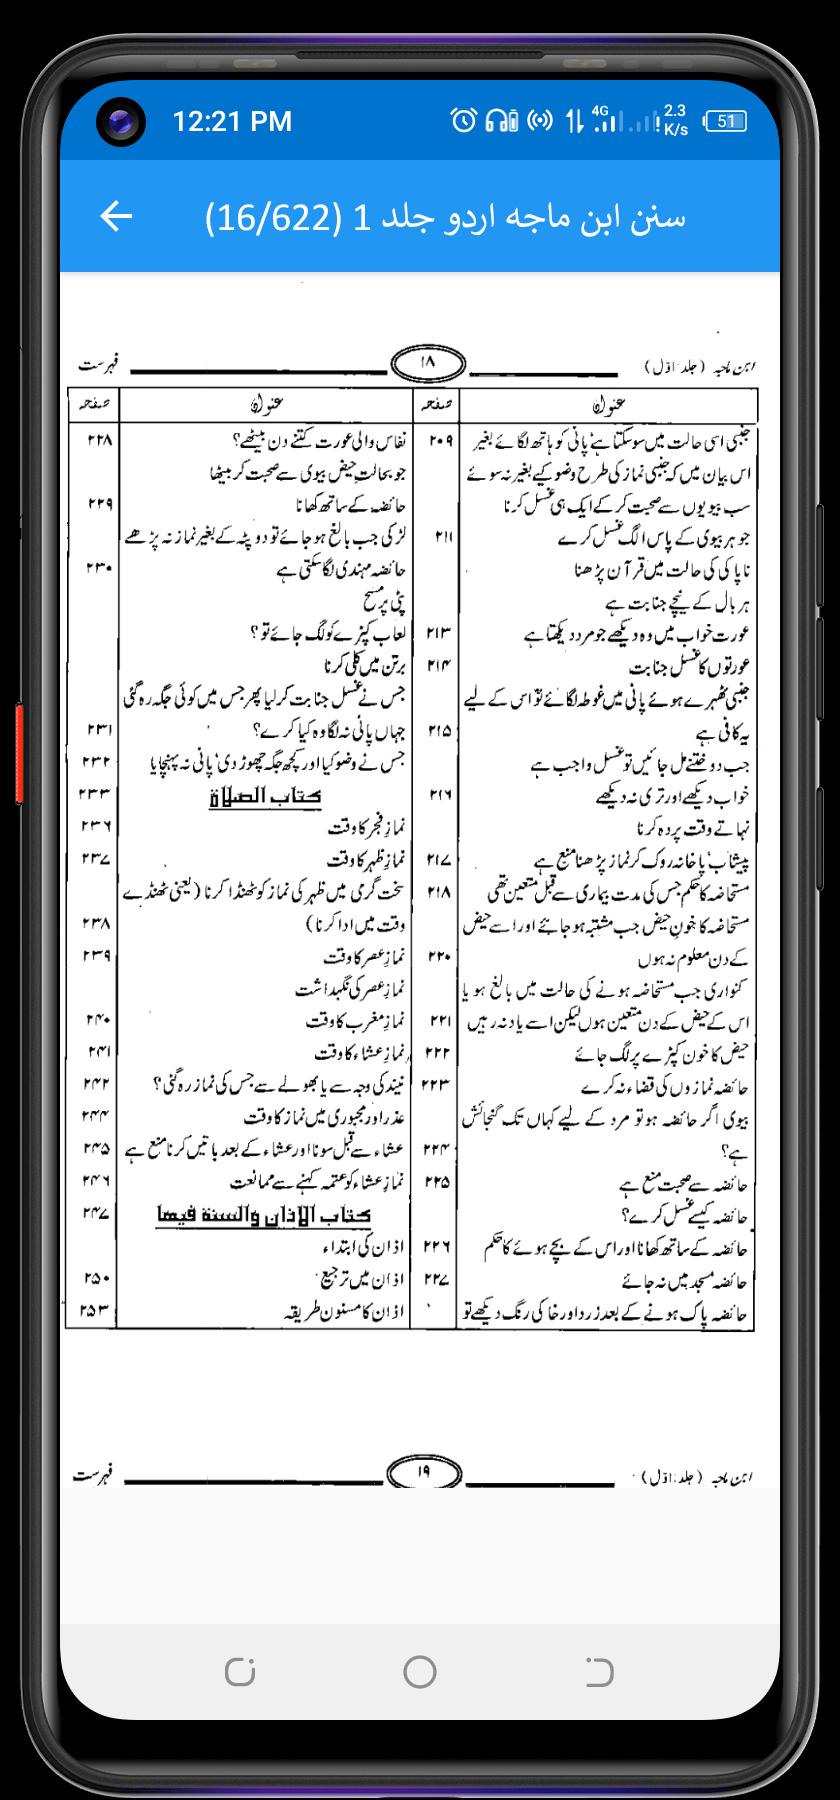 12:21 PM
4G
2.3 K/s
51
سنن ابن ماجه اردو جلد 1 (16/622)
ابن ماجہ (جلد اوّل)
۱۸
فہرست
عنوان
صفحہ
جنبی اسی حالت میں سو سکتا ہے پانی کو ہاتھ لگائے بغیر
۲۰۹
اس بیان میں کہ جنبی نماز کی طرح وضو کیے بغیر نہ سوئے
سب بیویوں سے صحبت کر کے ایک ہی غسل کرنا
جو ہر بیوی کے پاس الگ غسل کرے
۲۱۱
ناپاکی کی حالت میں قرآن پڑھنا
ہر بال کے نیچے جنابت ہے
عورت خواب میں وہ دیکھے جو مرد دیکھتا ہے
۲۱۳
عورتوں کا غسل جنابت
۲۱۴
جنبی ٹھہرے ہوئے پانی میں غوطہ لگائے تو اس کے لیے
یہ کافی ہے
۲۱۵
جب دو ختنے مل جائیں تو غسل واجب ہے
خواب دیکھے اور تری نہ دیکھے
۲۱۶
نہاتے وقت پردہ کرنا
پیشاب' پاخانہ روک کر نماز پڑھنا منع ہے
۲۱۷
مستحاضہ کا حکم جس کی مدت بیماری سے قبل متعین تھی
۲۱۸
مستحاضہ کا خونِ حیض جب مشتبہ ہو جائے اور اسے حیض
کے دن معلوم نہ ہوں
۲۲۰
کنواری جب مستحاضہ ہونے کی حالت میں بالغ ہو یا
اس کے حیض کے دن متعین ہوں لیکن اسے یاد نہ رہیں
۲۲۱
حیض کا خون کپڑے پر لگ جائے
۲۲۲
حائضہ نمازوں کی قضاء نہ کرے
۲۲۳
بیوی اگر حائضہ ہو تو مرد کے لیے کہاں تک گنجائش
ہے؟
۲۲۴
حائضہ سے صحبت منع ہے
۲۲۵
حائضہ کیسے غسل کرے؟
حائضہ کے ساتھ کھانا اور اس کے بچے ہوئے کا حکم
۲۲۶
حائضہ مسجد میں نہ جائے
۲۲۷
حائضہ پاک ہونے کے بعد زرد اور خاکی رنگ دیکھے تو
عنوان
صفحہ
نفاس والی عورت کتنے دن بیٹھے؟
۲۲۸
جو بحالتِ حیض بیوی سے صحبت کر بیٹھا
حائضہ کے ساتھ کھانا
۲۲۹
لڑکی جب بالغ ہو جائے تو دوپٹہ کے بغیر نماز نہ پڑھے
حائضہ مہندی لگا سکتی ہے
۲۳۰
پٹی پر مسح
لعاب کپڑے کو لگ جائے تو؟
برتن میں کلی کرنا
جس نے غسل جنابت کر لیا پھر جس میں کوئی جگہ رہ گئی
جہاں پانی نہ لگا وہ کیا کرے؟
۲۳۱
جس نے وضو کیا اور کچھ جگہ چھوڑ دی' پانی نہ پہنچایا
۲۳۲
كتاب الصلاة
۲۳۳
نمازِ فجر کا وقت
۲۳۶
نمازِ ظہر کا وقت
۲۳۷
سخت گرمی میں ظہر کی نماز کو ٹھنڈا کرنا (یعنی ٹھنڈے
وقت میں ادا کرنا)
۲۳۸
نمازِ عصر کا وقت
۲۳۹
نمازِ عصر کی نگہداشت
نمازِ مغرب کا وقت
۲۴۰
نمازِ عشاء کا وقت
۲۴۱
نیند کی وجہ سے یا بھولے سے جس کی نماز رہ گئی؟
۲۴۲
عذر اور مجبوری میں نماز کا وقت
۲۴۴
عشاء سے قبل سونا اور عشاء کے بعد باتیں کرنا منع ہے
۲۴۵
نمازِ عشاء کو عتمہ کہنے سے ممانعت
۲۴۶
كتاب الاذان والسنة فيها
۲۴۷
اذان کی ابتداء
اذان میں ترجیع
۲۵۰
اذان کا مسنون طریقہ
۲۵۳
ابن ماجہ (جلد اوّل)
۱۹
فہرست